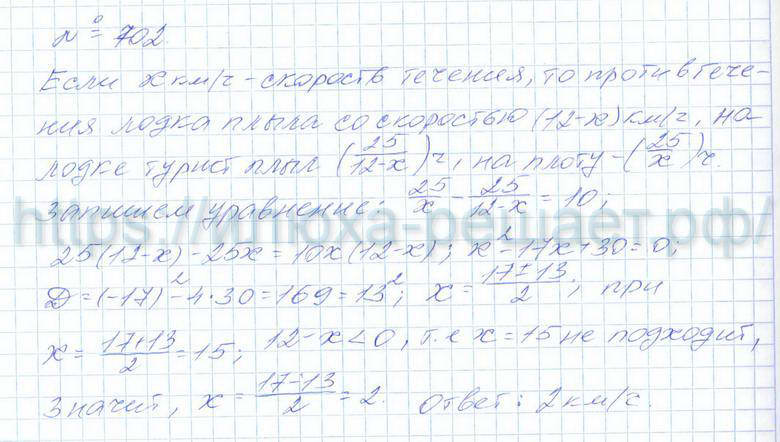 № 702.
Если x км/ч - скорость течения, то против тече-
ния лодка плыла со скоростью (12-x) км/ч, на
лодке турист плыл (25/12-x) ч, на плоту - (25/x) ч.
Запишем уравнение: 25/x - 25/12-x = 10;
https://илюха-решает.рф/
25(12-x) - 25x = 10x(12-x); x² - 17x + 30 = 0;
D = (-17)² - 4·30 = 169 = 13²; x = 17±13/2; при
x = 17+13/2 = 15; 12-x < 0, т.е x = 15 не подходит,
значит, x = 17-13/2 = 2. Ответ: 2 км/ч.